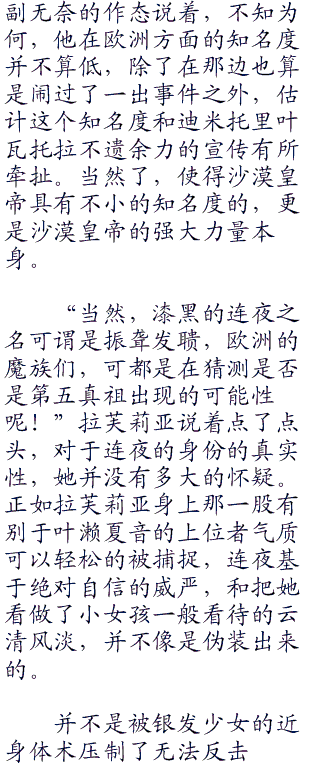 副无奈的作态说着，不知为
何，他在欧洲方面的知名度
并不算低，除了在那边也算
是闹过了一出事件之外，估
计这个知名度和迪米托里叶
瓦托拉不遗余力的宣传有所
牵扯。当然了，使得沙漠皇
帝具有不小的知名度的，更
是沙漠皇帝的强大力量本
身。
“当然，漆黑的连夜之
名可谓是振聋发聩，欧洲的
魔族们，可都是在猜测是否
是第五真祖出现的可能性
呢！”拉芙莉亚说着点了点
头，对于连夜的身份的真实
性，她并没有多大的怀疑。
正如拉芙莉亚身上那一股有
别于叶濑夏音的上位者气质
可以轻松的被捕捉，连夜基
于绝对自信的威严，和把她
看做了小女孩一般看待的云
清风淡，并不像是伪装出来
的。
并不是被银发少女的近
身体术压制了无法反击